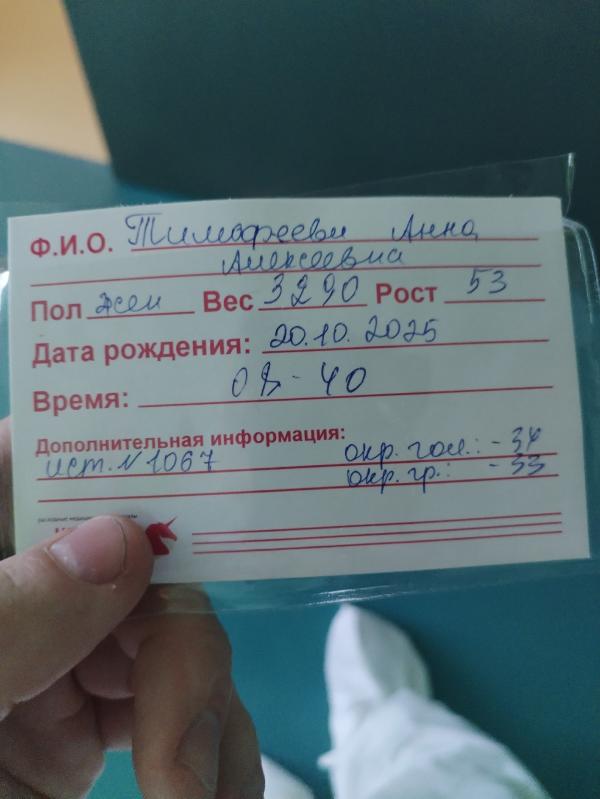 Ф.И.О. Анна
Алексеевна
Пол жен Вес 3290 Рост 53
Дата рождения: 20.10.2025
Время: - 40
Дополнительная информация:
ист. N 1067 окр. гол.: - 34
окр. гр.: - 33